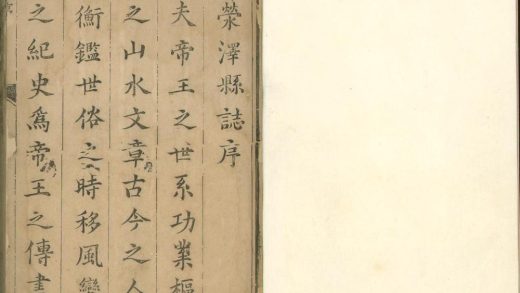 滎澤縣誌序
夫帝王之世系功業樞
之山水文章古今之人
衡鑑世俗之時移風變
之紀史爲帝王之傳書